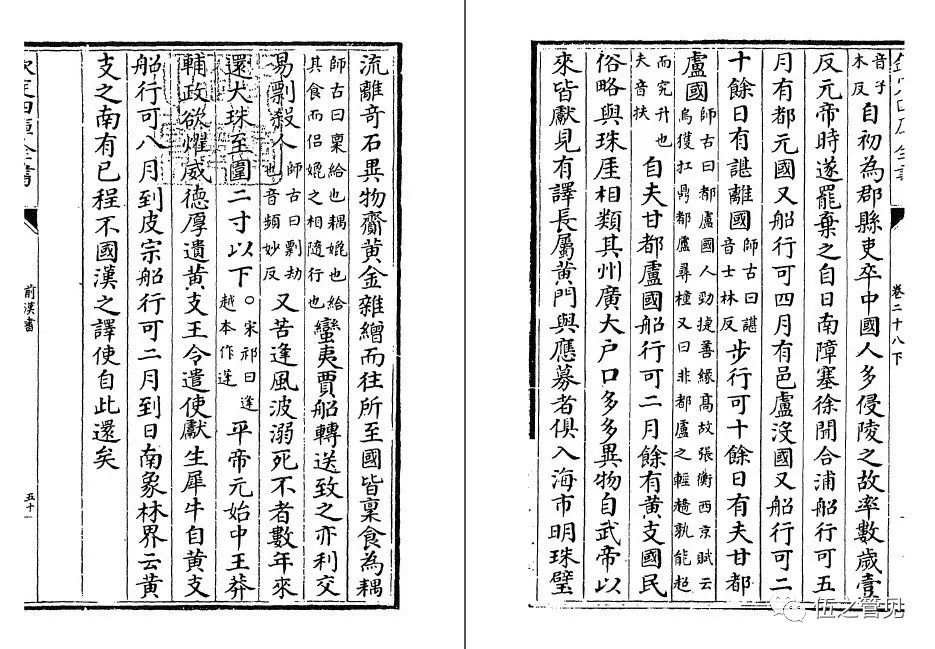 音子本反自初為郡縣吏卒中國人多侵陵之故率數歲壹
反元帝時遂罷棄之自日南障塞徐聞合浦船行可五
月有都元國又船行可四月有邑盧沒國又船行可二
十餘日有諶離國師古曰諶音士林反步行可十餘日有夫甘都
盧國師古曰都盧國人勁捷善緣髙故張衡西京賦云烏獲扛鼎都盧尋橦又曰非都盧之輕趫孰能超
而究升也夫音扶自夫甘都盧國船行可二月餘有黃支國民
俗略與珠厓相類其州廣大户口多多異物自武帝以
來皆獻見有譯長屬黃門與應募者俱入海市明珠璧
卷二十八下
流離奇石異物齎黃金雜繒而往所至國皆稟食為耦
師古曰稟給也耦媲也給其食而侶媲之相隨行也蠻夷賈船轉送致之亦利交
易剽殺人師古曰剽劫也音頻妙反又苦逢風波溺死不者數年來
還大珠至圍二寸以下。宋祁曰逢越本作蓬平帝元始中王莽
輔政欲燿威德厚遺黃支王令遣使獻生犀牛自黃支
船行可八月到皮宗船行可二月到日南象林界云黃
支之南有已程不國漢之譯使自此還矣
前漢書
五十一
伍之管见